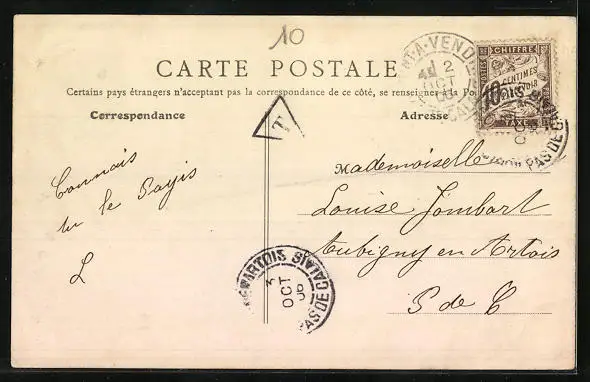 10
CARTE POSTALE
Certains pays étrangers n'acceptant pas la correspondance de ce côté, se renseigner à la Pos
Correspondance
Adresse
T
T-A-VENDI
2
OCT
POSTES CHIFFRE
10 CENTIMES
TAXE
PAS DE C
Connais
tu le Payis
L
Mademoiselle
Louise Jombart
Aubigny en Artois
P de C
3
OCT
06
PAS DE CALAIS